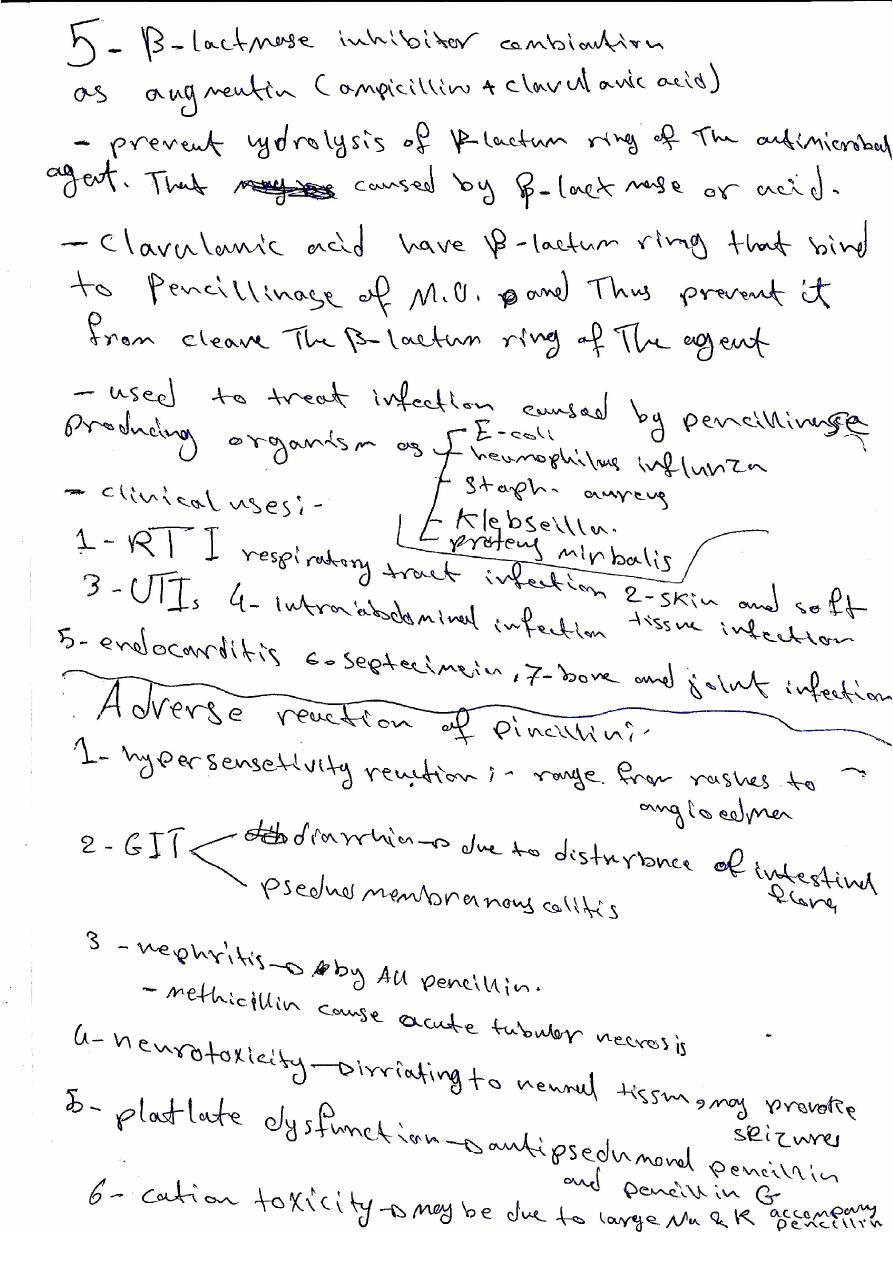 5- β-lactmase inhibitor combiantion
as augmentin (ampicillin + clavulanic acid)
- prevent hydrolysis of β-lactum ring of The antimicrobal
agent. That caused by β-lactmase or acid.
- Clavulanic acid have β-lactum ring that bind
to Pencillinase of M.O. and Thus prevent it
from cleave The β-lactum ring of The agent
- used to treat infection caused by pencillinase
producing organism as E-coli
heamophilus influnza
staph. aureus
Klebseilla.
proteus mirbalis
- clinical uses:-
1- RTI respiratory tract infection 2- skin and soft tissue infection
3- UTIs 4- intra'abdominal infection
5- endocarditis 6- septecimein, 7- bone and joint infection
Adverse reaction of pincillin:-
1- hypersensetivity reaction :- range from rashes to
angioedmea
2- GIT diarrhia → due to disturbnce of intestinal
flora
psedua membranous colitis
3 - nephritis → by All pencillin.
- methicillin cause acute tubular necrosis
4- neurotoxicity → irriating to neural tissm, may provoke
seizures
5- platlate dysfunction → antipsedumonal pencillin
and pencillin G
6- cation toxicity → may be due to large Na & K accompany
pencillin